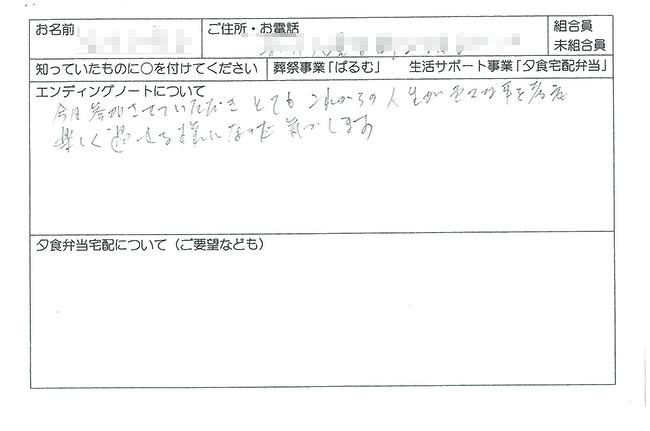 お名前
ご住所・お電話
組合員
未組合員
知っていたものに○を付けてください
葬祭事業「ぱるむ」
生活サポート事業「夕食宅配弁当」
エンディングノートについて
今日参加させていただき とても これからの人生が
楽しく過せる様になった気がします
夕食弁当宅配について（ご要望なども）